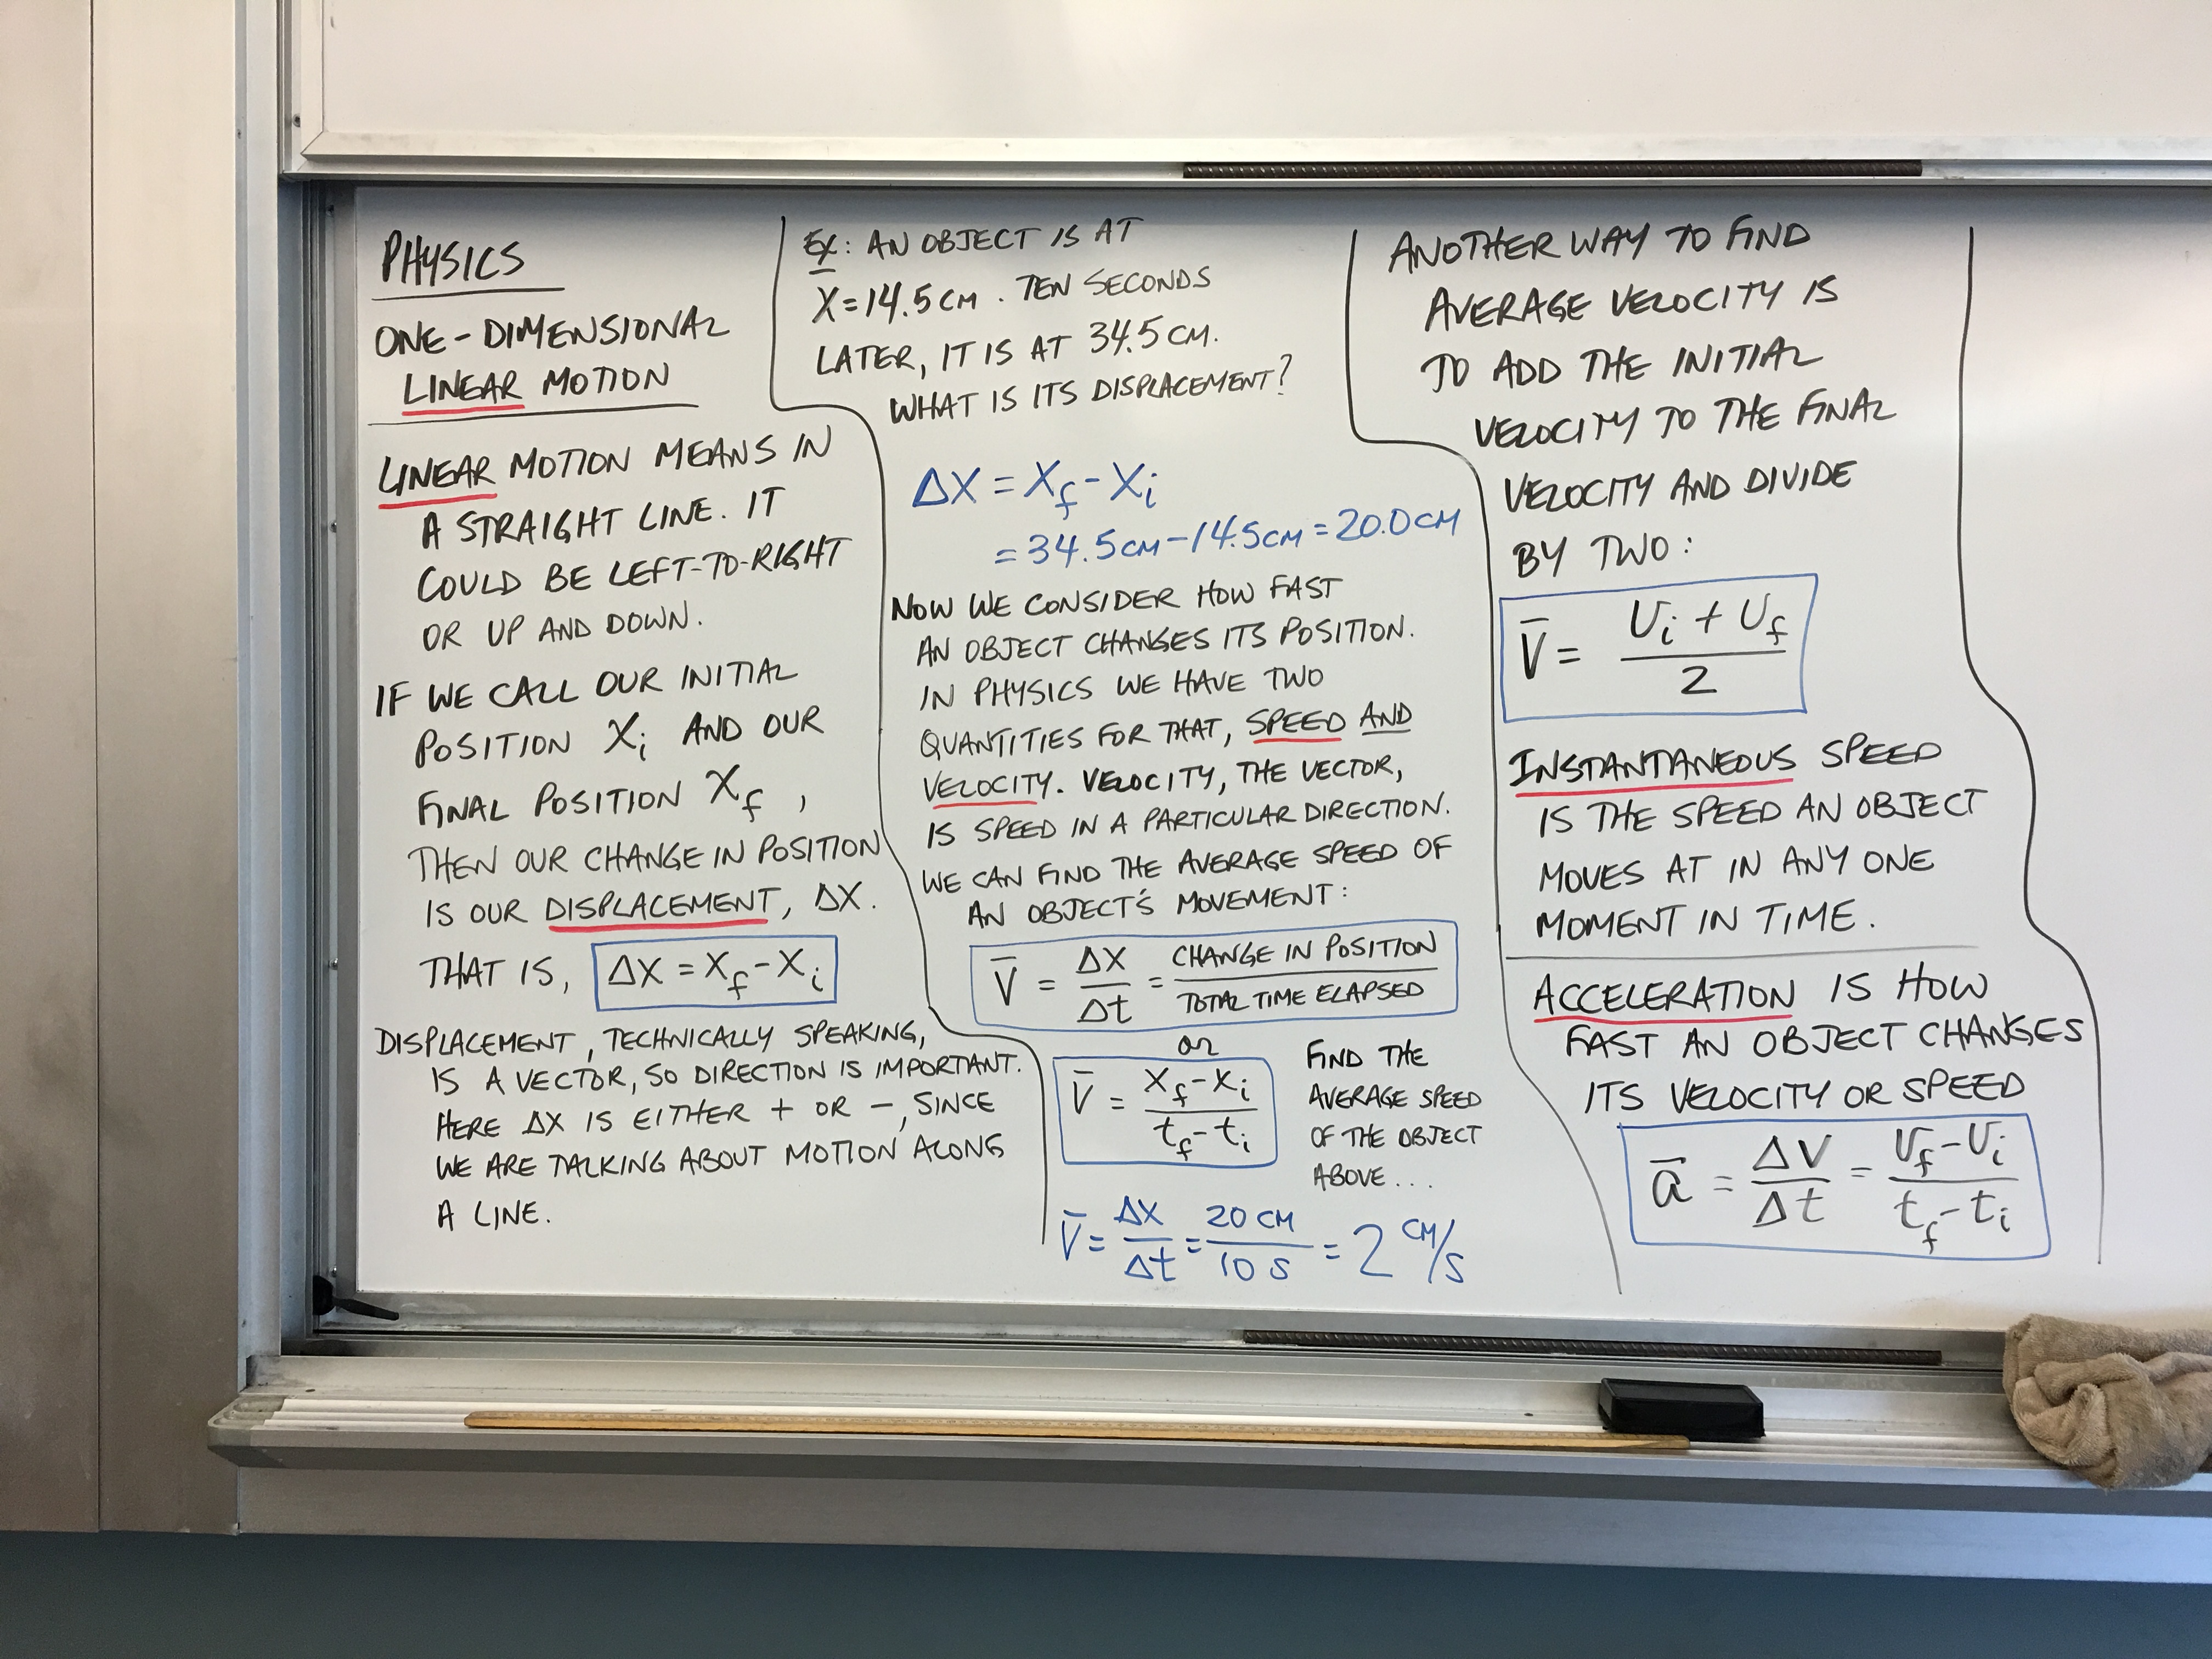 PHYSICS
ONE-DIMENSIONAL
LINEAR MOTION
LINEAR MOTION MEANS IN
A STRAIGHT LINE. IT
COULD BE LEFT-TO-RIGHT
OR UP AND DOWN.
IF WE CALL OUR INITIAL
POSITION Xi AND OUR
FINAL POSITION Xf ,
THEN OUR CHANGE IN POSITION
IS OUR DISPLACEMENT, ΔX.
THAT IS, ΔX = Xf - Xi
DISPLACEMENT, TECHNICALLY SPEAKING,
IS A VECTOR, SO DIRECTION IS IMPORTANT.
HERE ΔX IS EITHER + OR −, SINCE
WE ARE TALKING ABOUT MOTION ALONG
A LINE.
EX: AN OBJECT IS AT
X = 14.5 CM. TEN SECONDS
LATER, IT IS AT 34.5 CM.
WHAT IS ITS DISPLACEMENT?
ΔX = Xf - Xi
= 34.5 CM - 14.5 CM = 20.0 CM
NOW WE CONSIDER HOW FAST
AN OBJECT CHANGES ITS POSITION.
IN PHYSICS WE HAVE TWO
QUANTITIES FOR THAT, SPEED AND
VELOCITY. VELOCITY, THE VECTOR,
IS SPEED IN A PARTICULAR DIRECTION.
WE CAN FIND THE AVERAGE SPEED OF
AN OBJECT'S MOVEMENT:
V̄ = ΔX/Δt = CHANGE IN POSITION/TOTAL TIME ELAPSED
or
V̄ = (Xf - Xi)/(tf - ti)
FIND THE
AVERAGE SPEED
OF THE OBJECT
ABOVE...
V̄ = ΔX/Δt = 20 CM/10 S = 2 CM/S
ANOTHER WAY TO FIND
AVERAGE VELOCITY IS
TO ADD THE INITIAL
VELOCITY TO THE FINAL
VELOCITY AND DIVIDE
BY TWO:
V̄ = (Vi + Vf)/2
INSTANTANEOUS SPEED
IS THE SPEED AN OBJECT
MOVES AT IN ANY ONE
MOMENT IN TIME.
ACCELERATION IS HOW
FAST AN OBJECT CHANGES
ITS VELOCITY OR SPEED
ā = ΔV/Δt = (Vf - Vi)/(tf - ti)